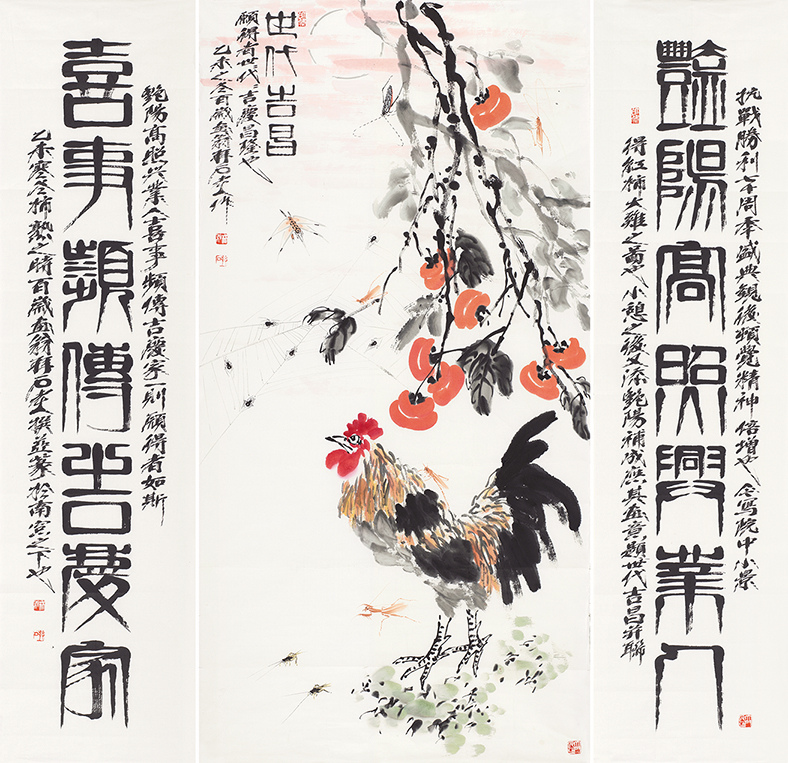 抗戰勝利七十周年盛典觀後頓覺精神倍增也今寫院中小景
豔陽高照興業人
得紅柿大雞之韵也小憩之後又添艷陽補成應其畫意題世代吉昌并聯
世代吉昌
願得者世代吉慶昌隆也
乙未之冬百歲畫翁拜石堂人作
艷陽高照興業人喜事頻傳吉慶家一則願得者如斯
喜事頻傳吉慶家
乙未寒冬柿熟之時百歲畫翁拜石堂人撰並篆於南窗之下也